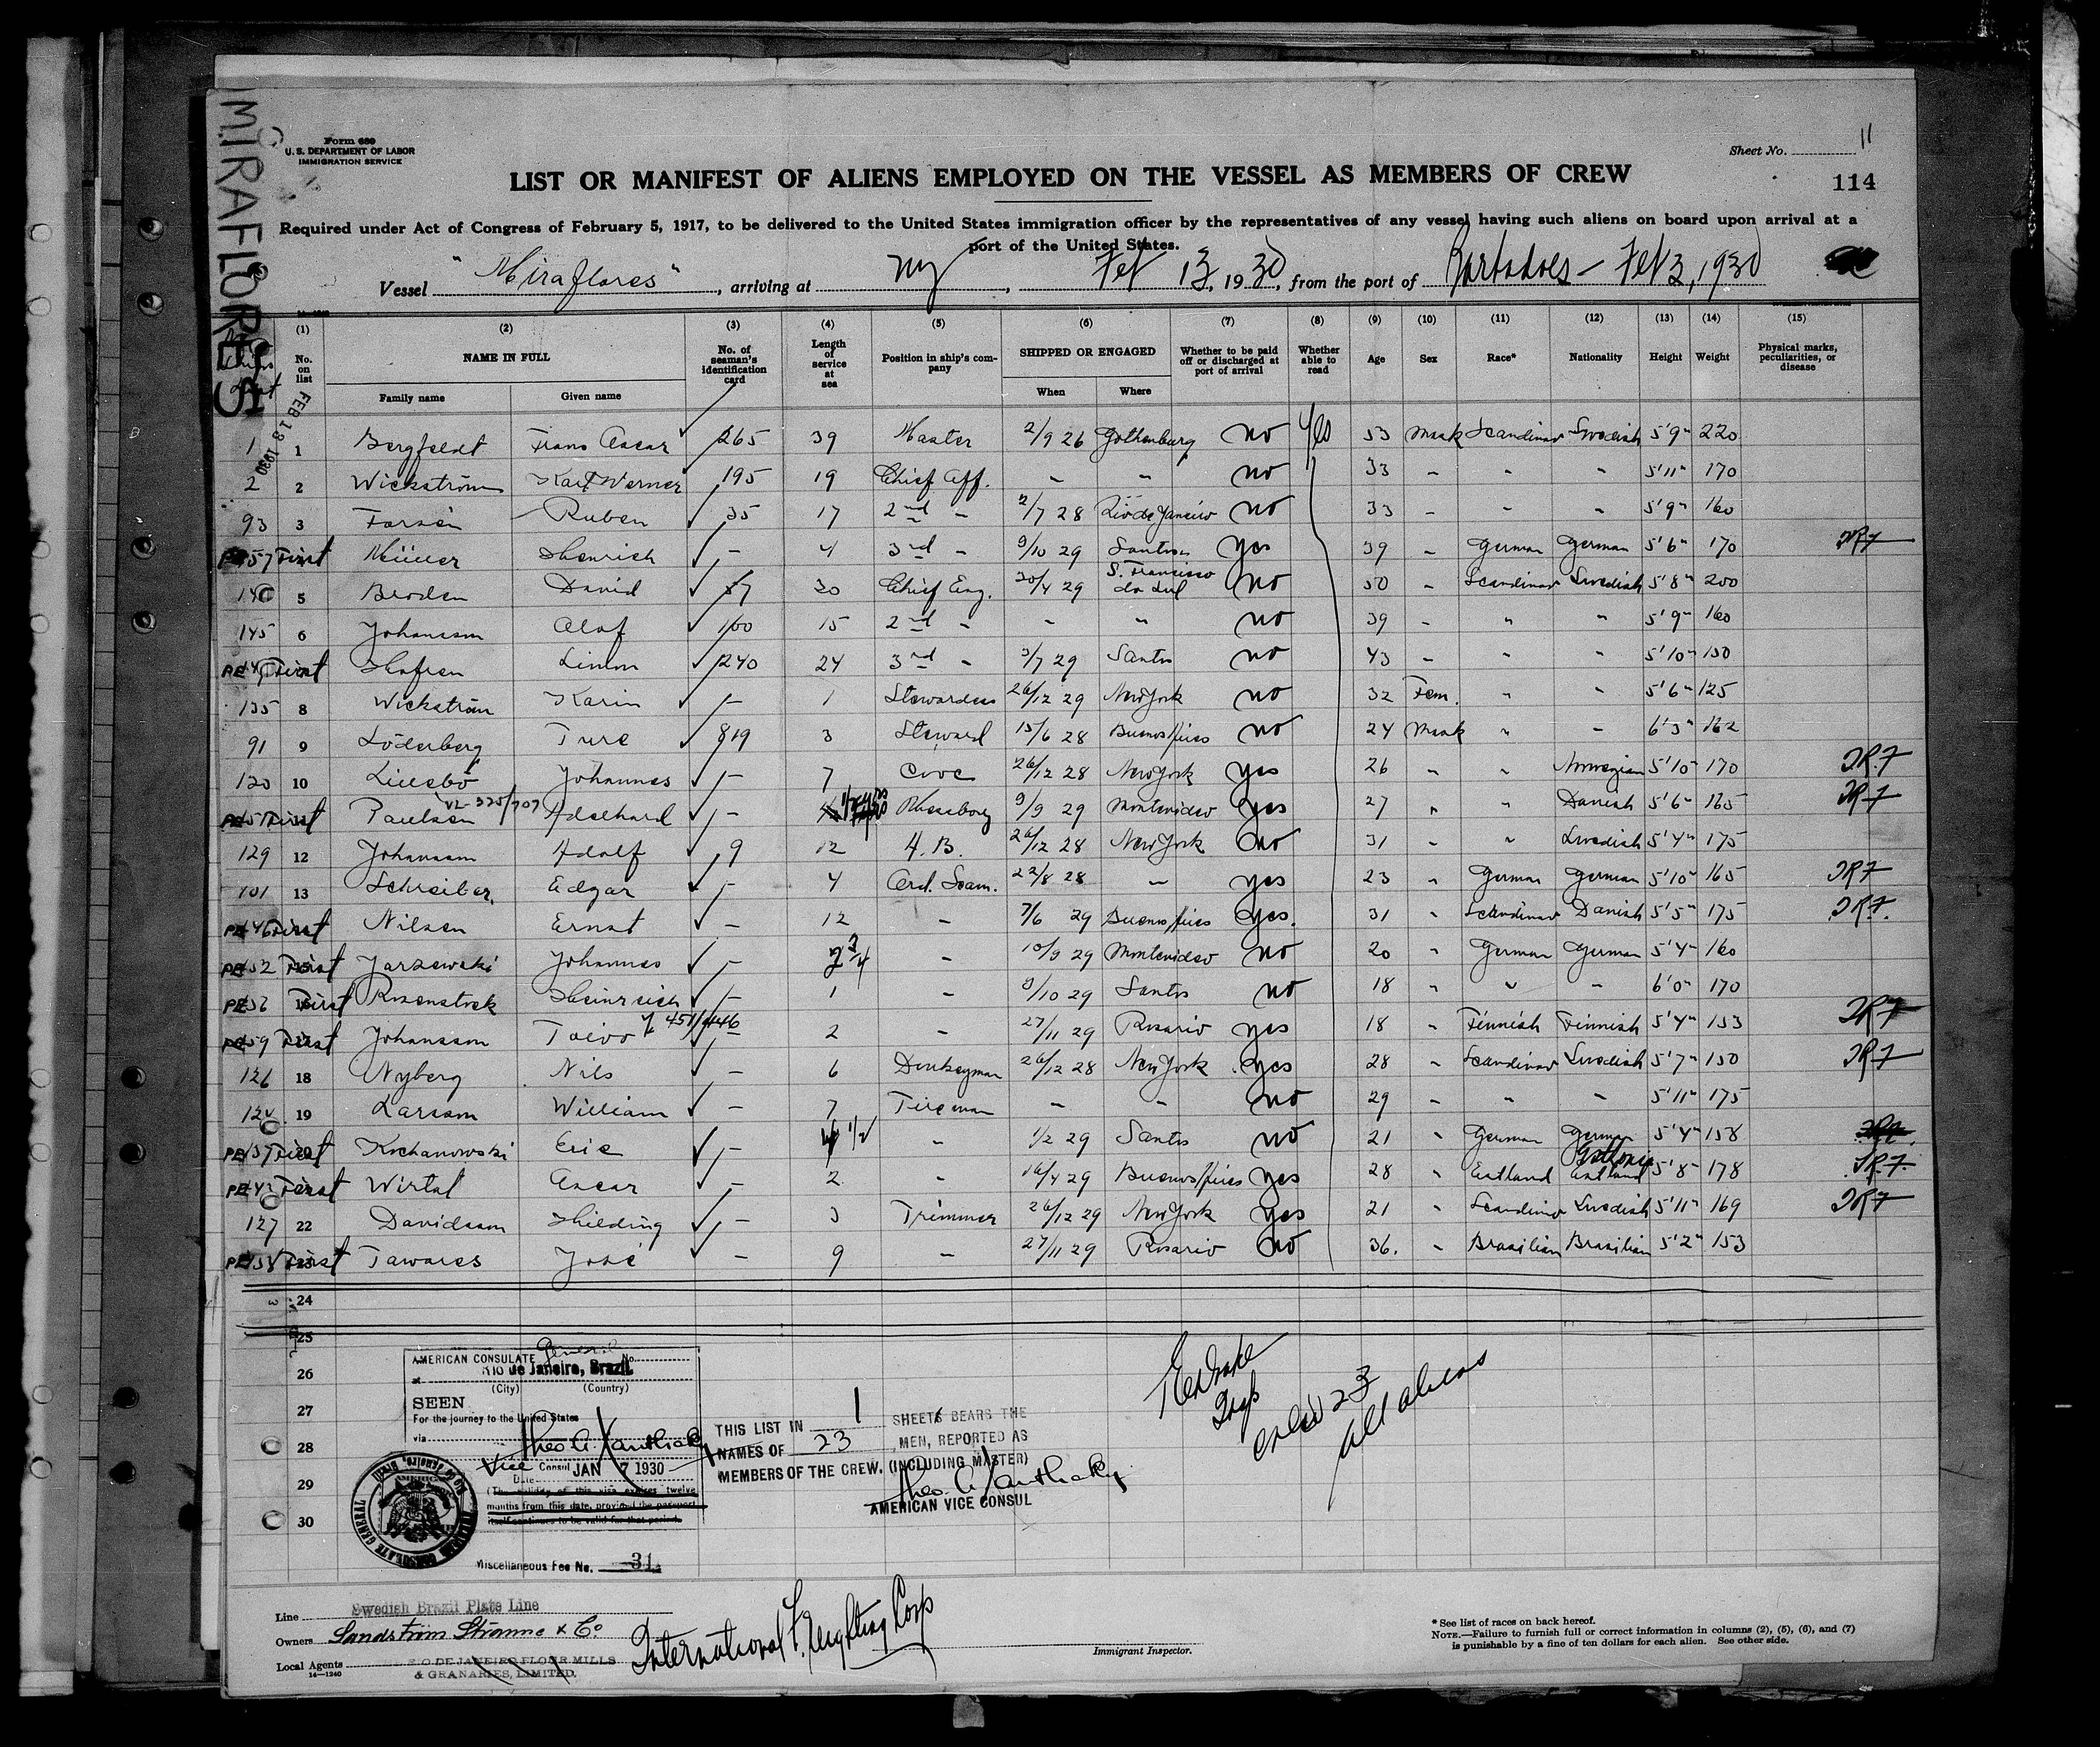 MIRAFLORES
Form 689
U. S. DEPARTMENT OF LABOR
IMMIGRATION SERVICE
Sheet No. 11
LIST OR MANIFEST OF ALIENS EMPLOYED ON THE VESSEL AS MEMBERS OF CREW
114
Required under Act of Congress of February 5, 1917, to be delivered to the United States immigration officer by the representatives of any vessel having such aliens on board upon arrival at a
port of the United States.
Vessel "Miraflores", arriving at NY, Feb 13, 1930, from the port of Barbadoes - Feb 3, 1930
(1) (2) (3) (4) (5) (6) (7) (8) (9) (10) (11) (12) (13) (14) (15)
No. on list NAME IN FULL No. of seaman's identification card Length of service at sea Position in ship's company SHIPPED OR ENGAGED Whether to be paid off or discharged at port of arrival Whether able to read Age Sex Race* Nationality Height Weight Physical marks, peculiarities, or disease
Family name Given name When Where
FEB 13 1930
1 1 Bergfeldt Frans Oscar 265 39 Master 2/9 26 Gothenburg no yes 53 Mask Scandinav Swedish 5'9" 220
2 2 Wickström Karl Werner 195 19 Chief Off. " " no 33 " " " 5'11" 170
93 3 Forsén Ruben 35 17 2nd " 2/7 28 Rio de Janeiro no 33 " " " 5'9" 160
57 First Müller Heinrich - 4 3rd " 9/10 29 Santos yes 39 " German German 5'6" 170
5 Broden David 57 30 Chief Eng. 30/4 29 S. Francisco do Sul no 50 " Scandinav Swedish 5'8" 200
145 6 Johansson Olof 100 15 2nd " " " no 39 " " " 5'9" 160
First Hofren Linum 240 24 3rd " 3/7 29 Santos no 43 " " " 5'10" 150
135 8 Wickström Karin - 1 Stewardess 26/12 29 New York no 32 Fem. " " 5'6" 125
91 9 Söderberg Ture 819 3 Steward 15/6 28 Buenos Aires no 24 Mask " " 6'3" 162
120 10 Lillebö Johannes - 7 Cook 26/12 28 New York yes 26 " " Norwegian 5'10" 170
First Paulsen Adelhard - Messboy 9/9 29 Montevideo yes 27 " " Danish 5'6" 165
129 12 Johansson Adolf 9 12 A.B. 26/12 28 New York no 31 " " Swedish 5'4" 175
101 13 Schreiber Edgar - 4 Ord. Seam. 22/8 28 " yes 23 " German German 5'10" 165
46 First Nilsen Ernst - 12 " 7/6 29 Buenos Aires yes. 31 " Scandinav Danish 5'5" 175
52 First Jarzewski Johannes - 2 3/4 " 10/9 29 Montevideo no 20 " German German 5'4" 160
First Rosenstock Heinreich - 1 " 9/10 29 Santos no 18 " " " 6'0" 170
59 First Johansson Toivo - 2 " 27/11 29 Rosario yes 18 " Finnish Finnish 5'4" 153
126 18 Nyberg Nils - 6 Donkeyman 26/12 28 New York yes 28 " Scandinav Swedish 5'7" 150
19 Larsson William - 7 Fireman " " no 29 " " " 5'11" 175
First Kochanowski Eric - 1/2 " 1/2 29 Santos no 21 " German German 5'4" 158
First Wirtal Oscar - 2 " 16/4 29 Buenos Aires yes 28 " Estland Estland Esthonia 5'8" 178
127 22 Davidsson Hilding - 3 Trimmer 26/12 29 New York yes 21 " Scandinav Swedish 5'11" 169
58 First Tawares José - 9 " 27/11 29 Rosario no 36. " Brasilian Brasilian 5'2" 153
24
25
26
27
28
29
30
AMERICAN CONSULATE General No.
at Rio de Janeiro, Brazil.
(City) (Country)
SEEN
For the journey to the United States
via
Theo. A. Xanthaky
Vice Consul
Date JAN 7 1930
(The validity of this visa expires twelve
months from this date, provided the passport
itself continues to be valid for that period.
Miscellaneous Fee No. 31
THIS LIST IN 1 SHEETS BEARS THE
NAMES OF 23 MEN, REPORTED AS
MEMBERS OF THE CREW. (INCLUDING MASTER)
Theo. A. Xanthaky
AMERICAN VICE CONSUL
Insp
crew 23
all aliens
Line Swedish Brazil Plate Line
Owners Sandström Stranne & Co
Local Agents RIO DE JANEIRO FLOUR MILLS
& GRANARIES, LIMITED.
14—1240
International Freighting Corp
Immigrant Inspector.
* See list of races on back hereof.
NOTE.—Failure to furnish full or correct information in columns (2), (5), (6), and (7)
is punishable by a fine of ten dollars for each alien. See other side.